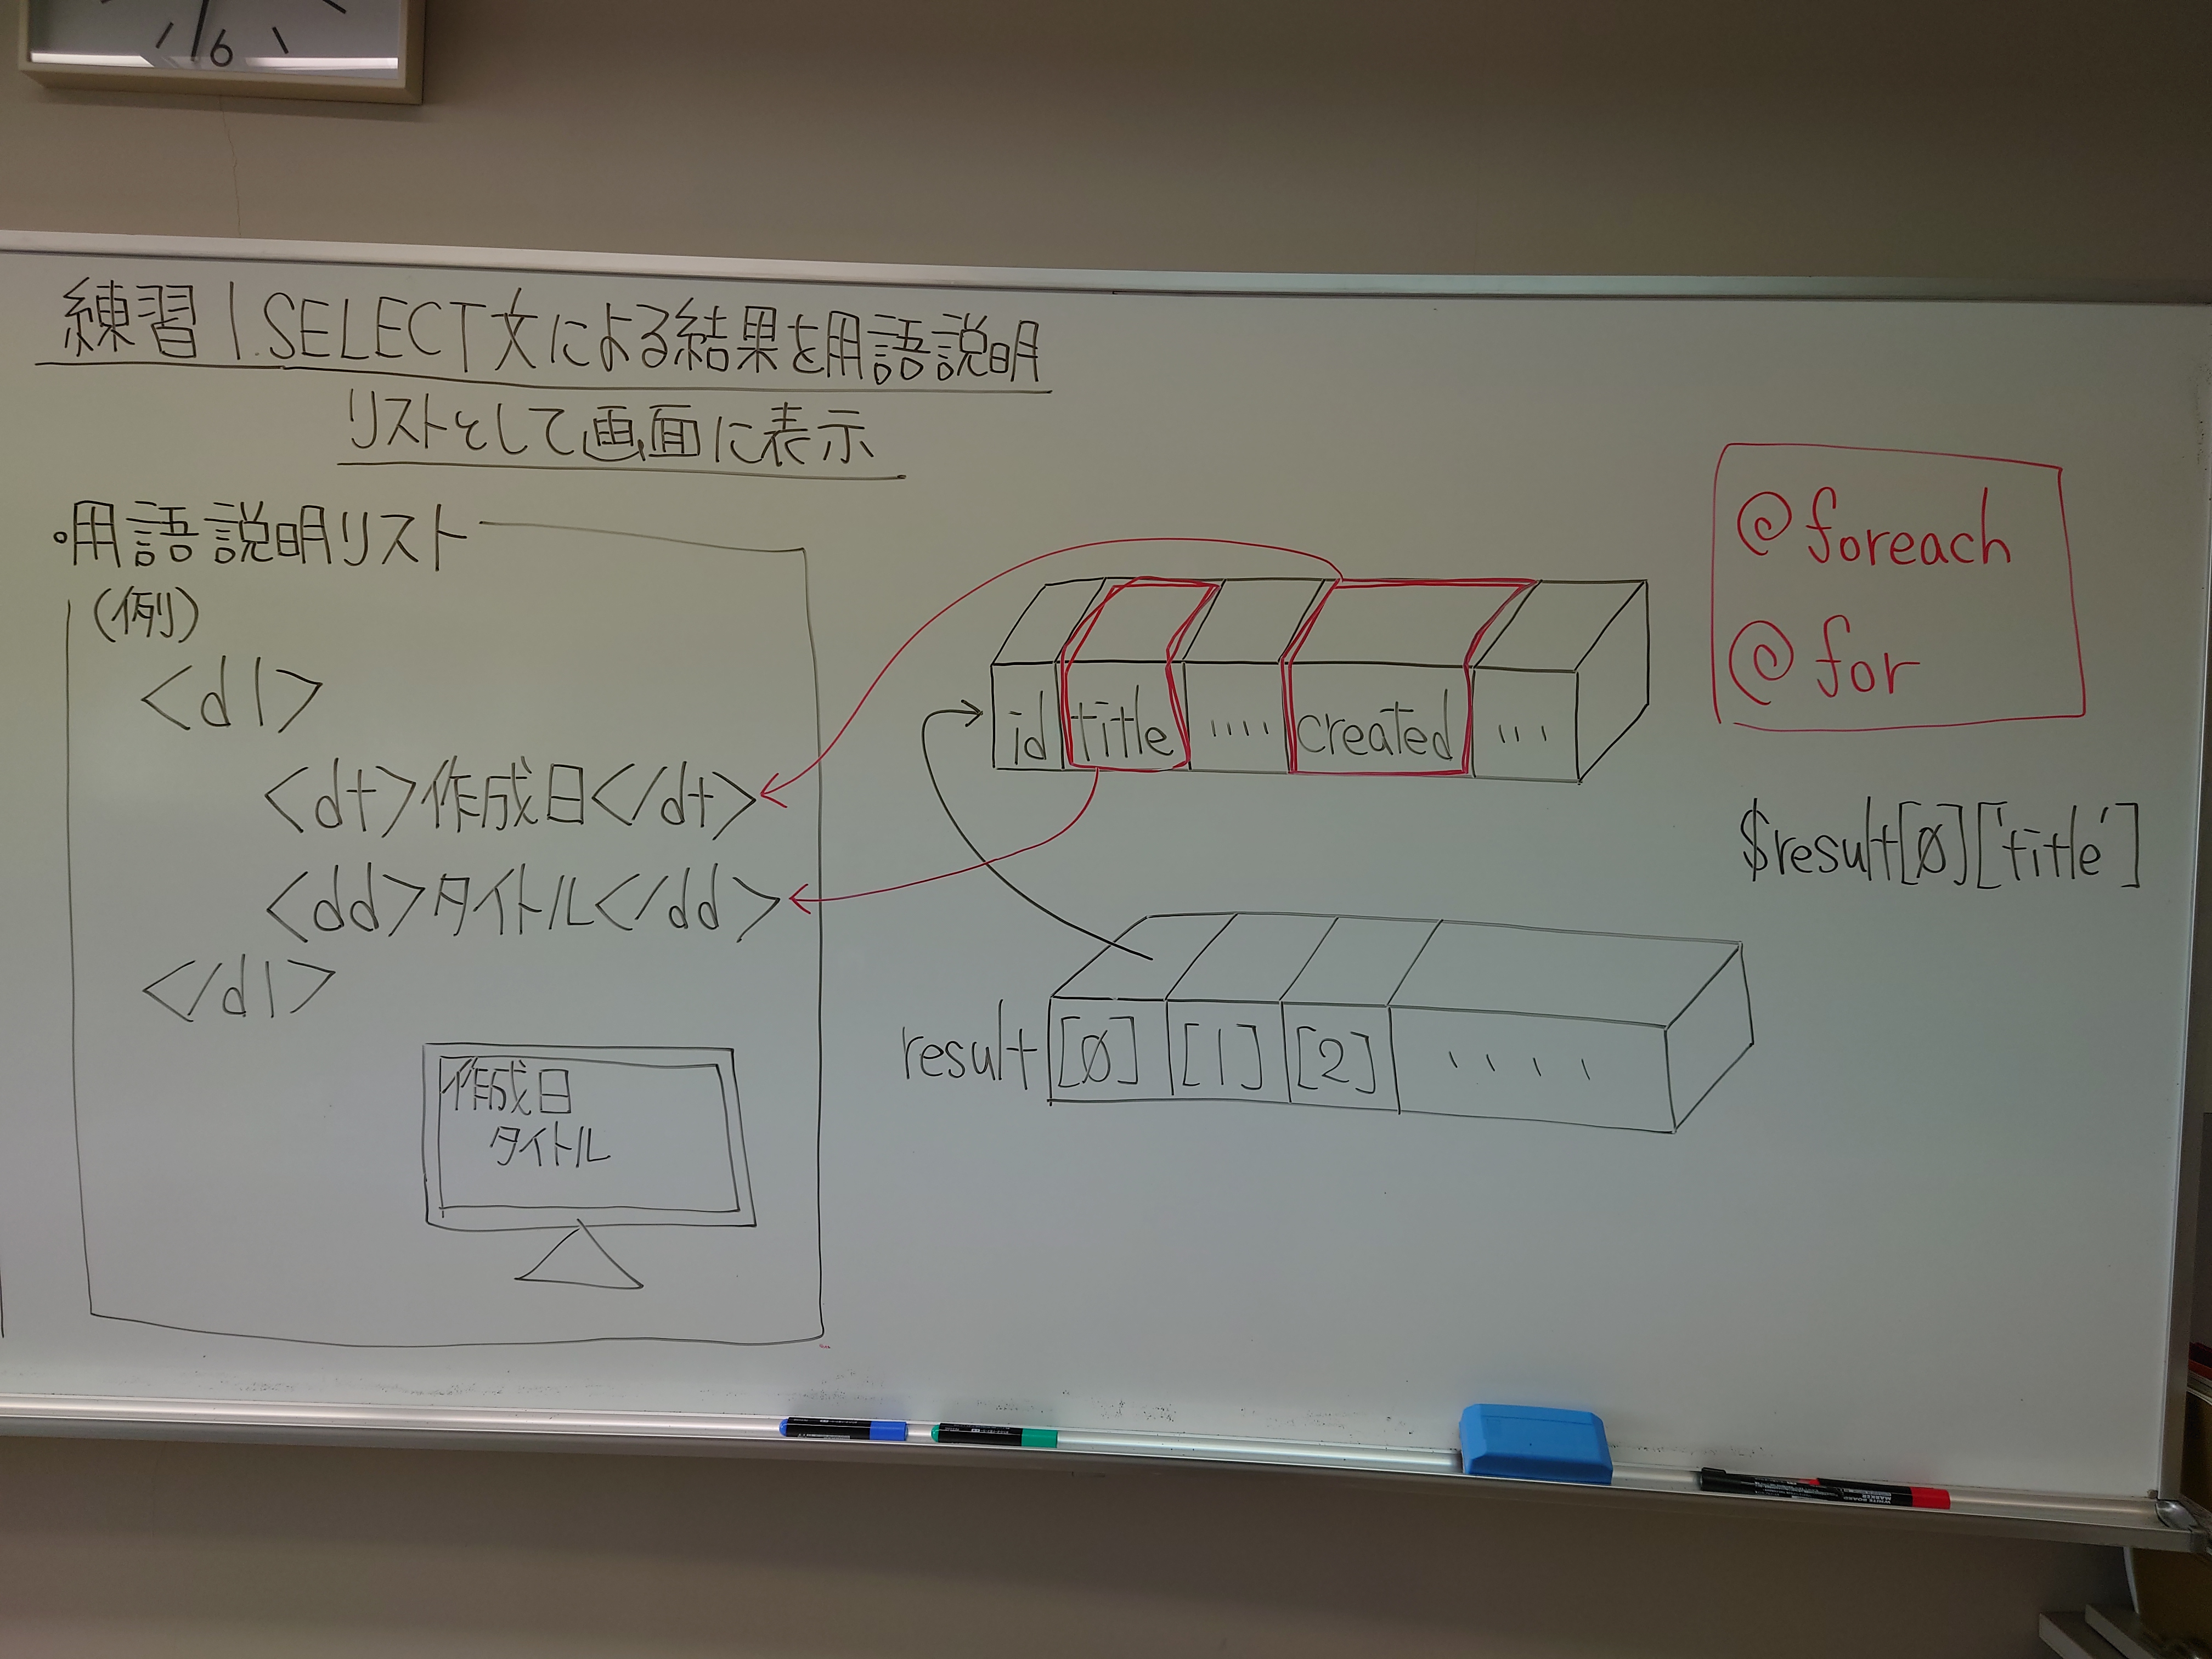 6
練習1.SELECT文による結果を用語説明
リストとして画面に表示
・用語説明リスト
(例)
<dl>
<dt>作成日</dt>
<dd>タイトル</dd>
</dl>
作成日
タイトル
id title ‥‥ created …
result [0] [1] [2] ‥‥
@foreach
@for
$result[0]['title']
WHITE BOARD
MARKER